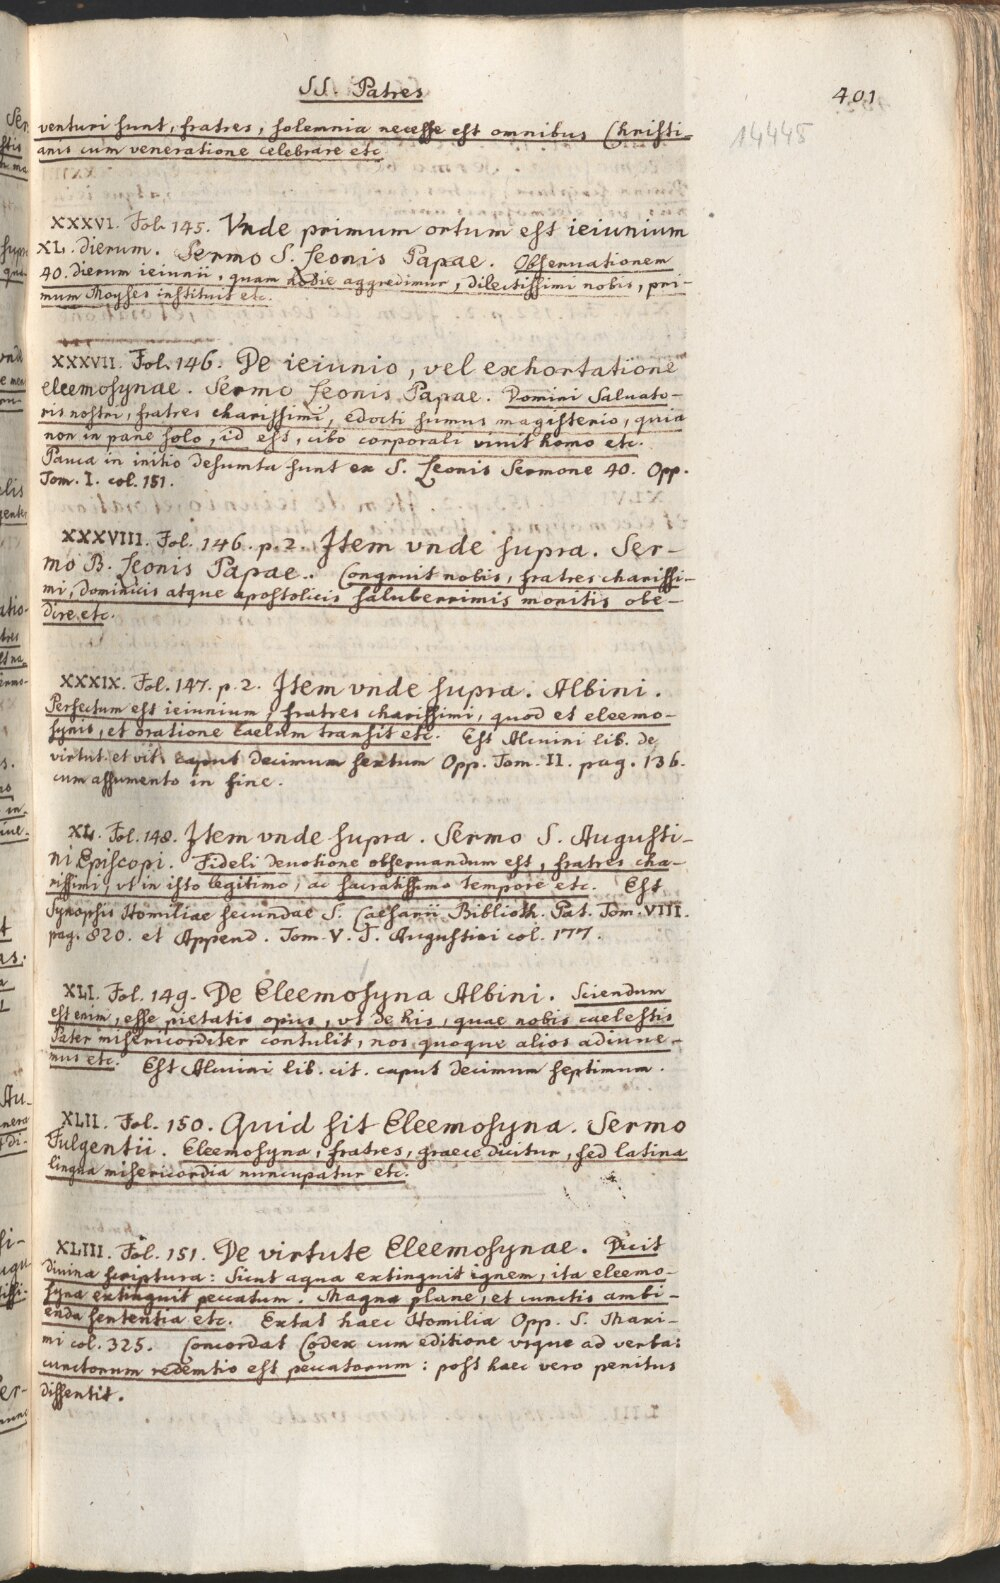 SS. Patres
401
14445
venturi sunt, fratres, solemnia necesse est omnibus Christi-
anis cum veneratione celebrare etc.
XXXVI. Fol. 145. Vnde primum ortum est ieiunium
XL. dierum. Sermo S. Leonis Papae. Obseruationem
40. dierum ieiunii, quam hodie aggredimur, dilectissimi nobis, pri-
mum Moyses instituit etc.
XXXVII. Fol. 146. De ieiunio, vel exhortatione
eleemosynae. Sermo Leonis Papae. Domini Saluato-
ris nostri, fratres charissimi, edocti sumus magisterio, quia
non in pane solo, id est, cibo corporali viuit homo etc.
Pauca in initio desumta sunt ex S. Leonis Sermone 40. Opp.
Tom. I. col. 151.
XXXVIII. Fol. 146. p. 2. Item vnde supra. Ser-
mo B. Leonis Papae. Congruit nobis, fratres charissi-
mi, dominicis atque apostolicis saluberrimis monitis obe-
dire etc.
XXXIX. Fol. 147. p. 2. Item vnde supra. Albini.
Perfectum est ieiunium, fratres charissimi, quod et eleemo-
synis, et oratione caelum transit etc. Est Alcuini lib. de
virtut. et vit. caput decimum sextum Opp. Tom. II. pag. 136.
cum assumento in fine.
XL. Fol. 148. Item vnde supra. Sermo S. Augusti-
ni Episcopi. Fideli deuotione obseruandum est, fratres cha-
rissimi, vt in isto legitimo, ac sacratissimo tempore etc. Est
Synopsis Homiliae secundae S. Caesarii Biblioth. Pat. Tom. VIII.
pag. 820. et Append. Tom. V. S. Augustini col. 177.
XLI. Fol. 149. De Eleemosyna Albini. Sciendum
est enim, esse pietatis opus, vt de his, quae nobis caelestis
Pater misericorditer contulit, nos quoque alios adiuue-
mus etc. Est Alcuini lib. cit. caput decimum septimum.
XLII. Fol. 150. Quid sit Eleemosyna. Sermo
Fulgentii. Eleemosyna, fratres, graece dicitur, sed latina
lingua misericordia nuncupatur etc.
XLIII. Fol. 151. De virtute Eleemosynae. Dicit
Diuina scriptura: Sicut aqua extinguit ignem, ita eleemo-
syna extinguit peccatum. Magna plane, et cunctis ambi-
enda sententia etc. Extat haec Homilia Opp. S. Maxi-
mi col. 325. Concordat Codex cum editione vsque ad verba:
cunctorum redemtio est peccatorum: post haec vero penitus
dissentit.